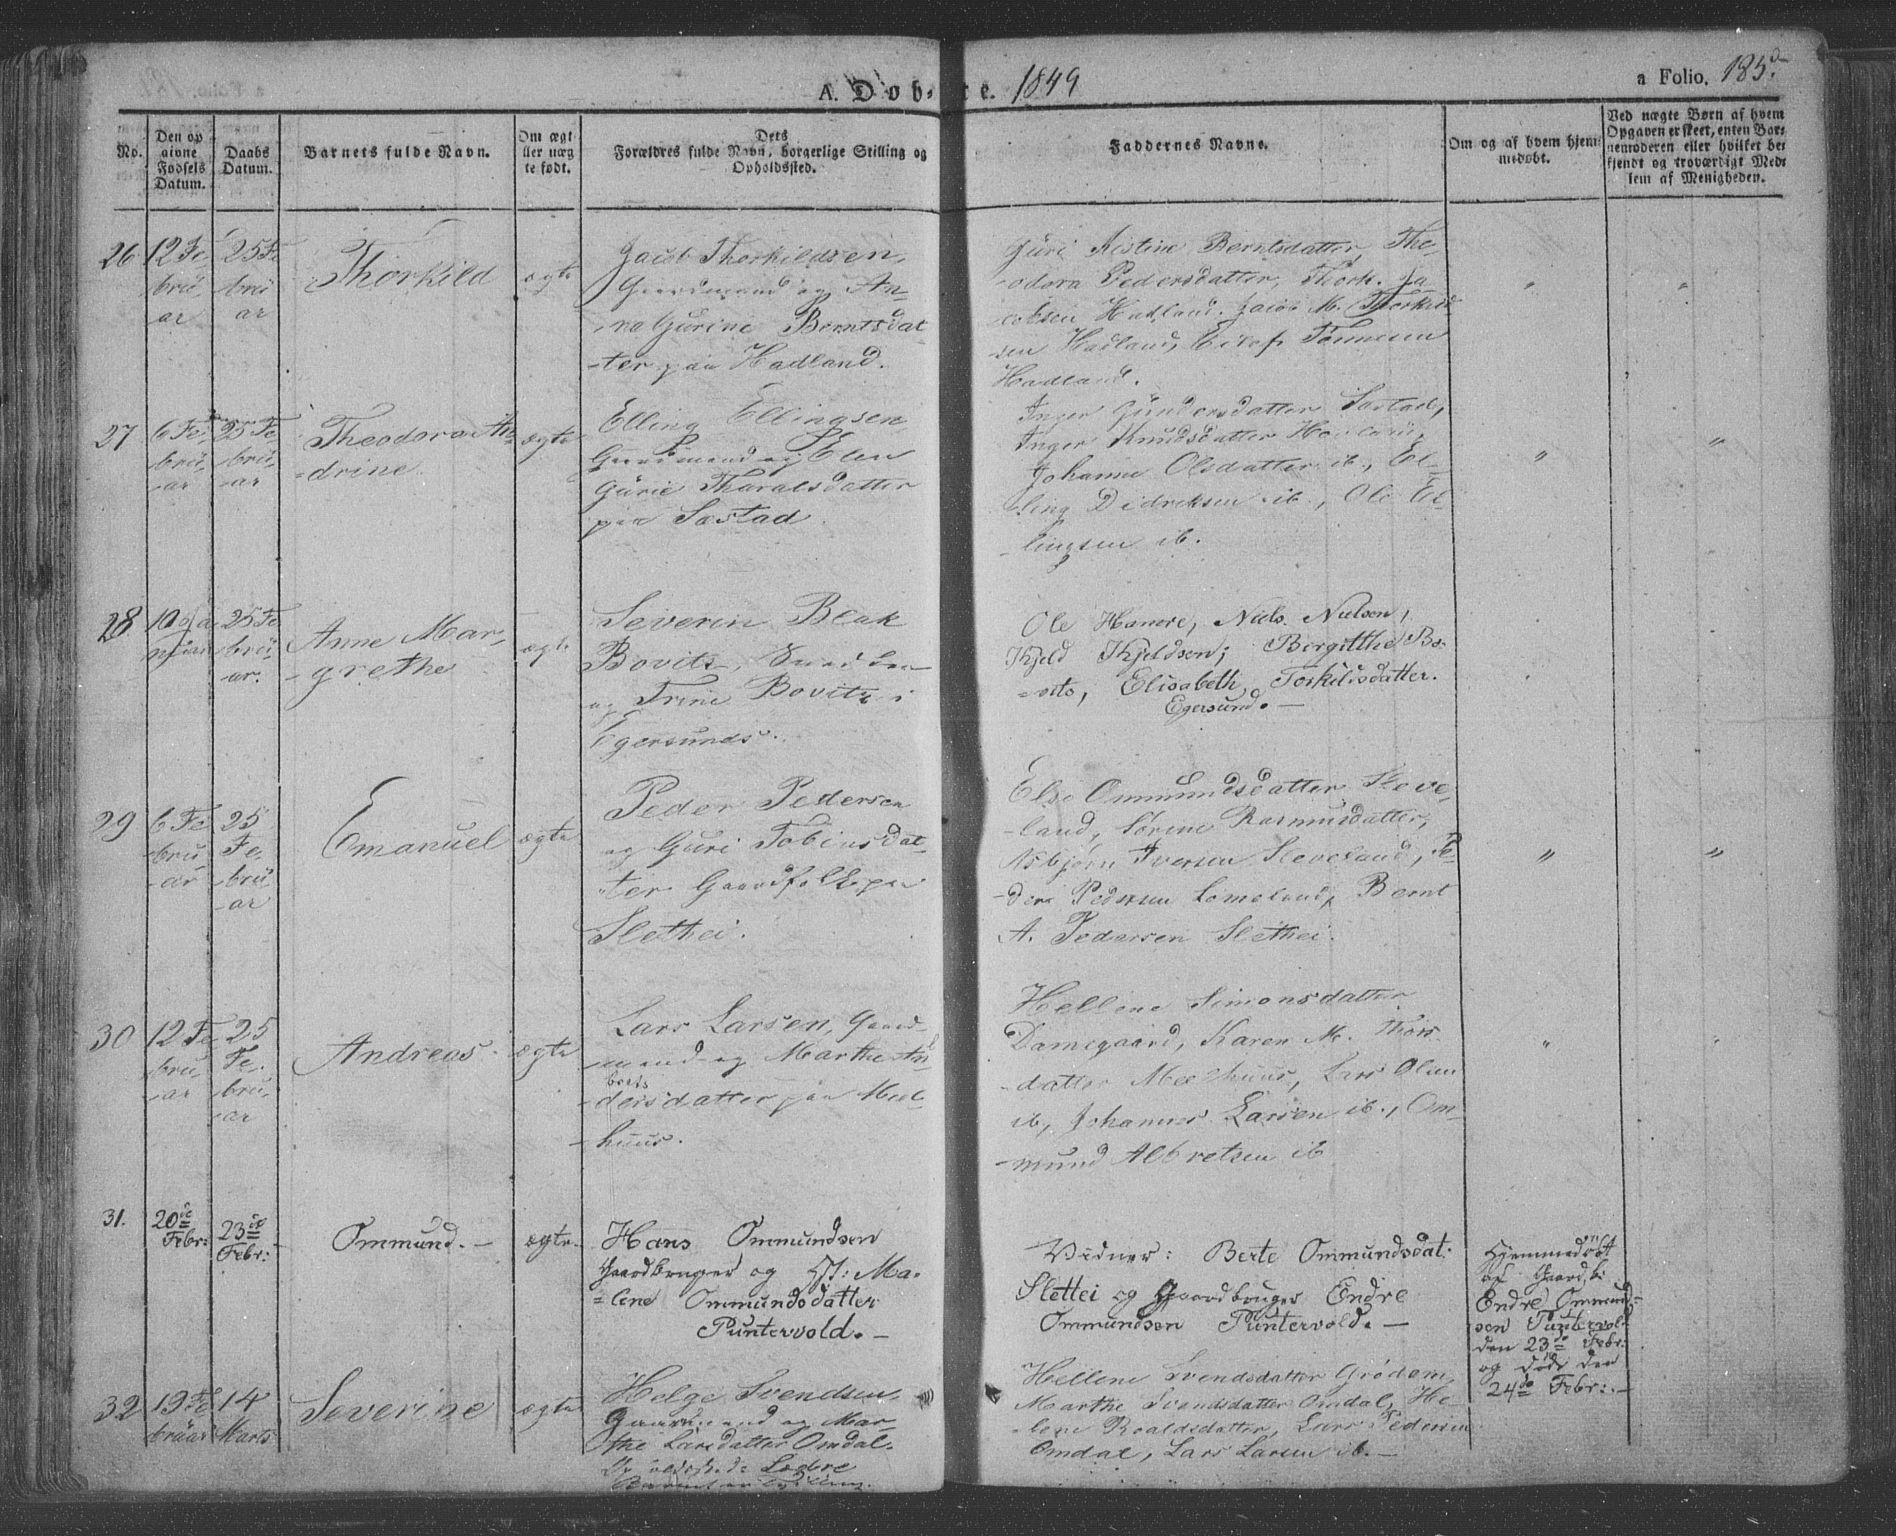 A. Dobte. 1849
a Folio. 185.
No.
Den op
givne
Fødsels
Datum.
Daabs
Datum.
Barnets fulde Navn.
Om ægt
ller uæg
te født.
Dets
Forældres fulde Navn, borgerlige Stilling og
Opholdssted.
Faddernes Navne.
Om og af hvem hjem
medøbt.
Ved uægte Børn af hvem
Opgaven er skeet, enten Bar-
nemoderen eller hvilket be
kjendt og troværdigt Med-
lem af Menigheden.
26
12 Fe
bru
ar
25 Fe
bru
ar
Thorkild
ægte
Jacob Thorkildsen,
Gaardmand og An-
na Gurine Berntsdat
-ter paa Hadland.
Guri Kistine Berntsdatter, The-
odora Pedersdatter, Thork. Ja
cobsen Hadland. Jacob M. Thorkild
sen Hadland, Eilef Tønnesen
Hadland.
27
6 Fe
bru
ar
25 Fe
bru
-ar
Theodora An-
-drine
ægte
Elling Ellingsen
Gaardmand og Elen
Gurie Tharalsdatter
paa Sæstad
Inger Gundersdatter Sæstad,
Inger Knudsdatter
Johanne Olsdatter ib., El-
ling Didriksen ib, Ole El
-lingsen ib.
28
25 Fe
bru-
ar.
Anne Mar-
-grethe
ægte
Severin Blak
Bovitz,
og Trine Bovitz i
Egersund.
Ole Hanere, Niels Nielsen,
Kjeld Kjeldsen; Bergitthe Bo-
-vits, Elisabeth Toskildsdatter.
Egersund. —
29
6 Fe
bru
-ar
25
Fe-
bru
ar
Emanuel
ægte
Peder Pedersen
og Guri Tobiasdat-
ter Gaardfolk paa
Slethei.
Else Ommundsdatter Sleve-
land, Sørine Rasmusdatter,
Asbjørn Iversen Sleveland, Pe-
-der Pedersen Lomeland, Bernt
A. Pedersen Slethei.
30
12 Fe
bru
-ar
25
Fe-
bru-
-ar
Andreas.
ægte
Lars Larsen, Gaard-
mand og Marthe Al
brets
-dersdatter paa Meel-
huus.
Hellene Simonsdatter
Damsgaard, Karen M. Thors
datter Meelhuus, Lars Olsen
ib, Johannes Larsen ib., Om-
-mund Albretsen ib
31.
20de
Febr:
23de
Febr:
Ommund. —
ægte.
Hans Ommundsen
Gaardbruger og Hst: Ma-
= lene Ommundsdatter
Puntervold. —
Vidner: Berte Ommundsdat:
Slettei og Gaardbruger Endre
Ommundsen Puntervold. —
Hjemmedøbt
af Gaardb:
Endre Ommund-
sen Puntervold
den 23de Febr:
og døde den
24de Febr: —
32
19 Fe
bruar
14
Marts
Severine
ægte
Helge Svendsen,
Gaardmand og Mar-
the Larsdatter Omdal.
Hellene Svendsdatter Grødem,
Marthe Svendsdatter Omdal, He
-lene Roaldsdatter, Lars Pedersen
Omdal, Lars Larsen ib. —